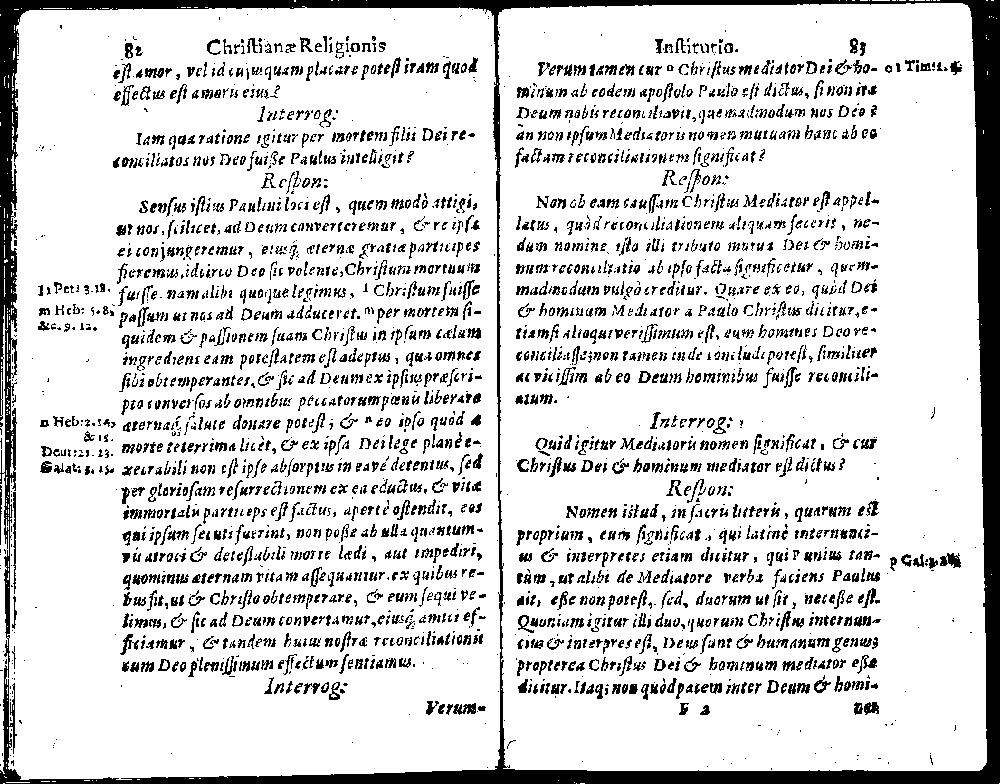 82 Christianæ Religionis
est amor, vel id cujusquam placare potest iram quod
effectus est amoris ejus?
Interrog:
Iam qua ratione igitur per mortem filii Dei re-
conciliatos nos Deo fuisse Paulus intelligit?
Respon:
Sensus istius Paulini loci est, quem modò attigi,
ut nos, scilicet, ad Deum converteremur, & re ipsa
ei conjungeremur, ejusq́ æternæ gratiæ participes
fieremus, idcirco Deo sic volente, Christum mortuum
fuisse. nam alibi quoque legimus, l Christum fuisse
passum ut nos ad Deum adduceret. m per mortem si-
quidem & passionem suam Christus in ipsum cælum
ingrediens eam potestatem est adeptus, qua omnes
sibi obtemperantes, & sic ad Deum ex ipsius præscri-
pto conversos ab omnibus peccatorum pœnis liberare
æternaq́ salute donare potest; & n eo ipso quòd a
morte teterrima licèt, & ex ipsa Dei lege planè e-
xecrabili non est ipse absorptus in eavé detentus, sed
per gloriosam resurrectionem ex ea eductus, & vitæ
immortalis particeps est factus, apertè ostendit, eos
qui ipsum secuti fuerint, non posse ab ulla quantum-
vis atroci & detestabili morte lædi, aut impediri,
quominus æternam vitam assequantur. ex quibus re-
bus fit, ut & Christo obtemperare, & eum sequi ve-
limus, & sic ad Deum convertamur, ejusq́ amici ef-
ficiamur, & tandem huius nostræ reconciliationis
cum Deo plenissimum effectum sentiamus.
Interrog:
Verum-
l 1 Pet: 3.18.
m Heb: 5.8,
&c. 9. 12.
n Heb: 2.14,
& 15.
Deut: 21. 23.
Galat: 3. 13.
Institutio. 83
Verumtamen cur o Christus mediator Dei & ho-
minum ab eodem apostolo Paulo est dictus, si non ita
Deum nobis reconciliavit, quemadmodum nos Deo?
an non ipsum Mediatoris nomen mutuam hanc ab eo
factam reconciliationem significat?
Respon:
Non ob eam caussam Christus Mediator est appel-
latus, quòd reconciliationem aliquam fecerit, ne-
dum nomine isto illi tributo mutua Dei & homi-
num reconciliatio ab ipso facta significetur, quem-
madmodum vulgò creditur. Quare ex eo, quòd Dei
& hominum Mediator a Paulo Christus dicitur, e-
tiamsi alioqui verissimum est, eum homines Deo re-
conciliasse; non tamen inde concludi potest, similiter
ac vicissim ab eo Deum hominibus fuisse reconcili-
atum.
Interrog:
Quid igitur Mediatoris nomen significat, & cur
Christus Dei & hominum mediator est dictus?
Respon:
Nomen istud, in sacris litteris, quarum est
proprium, eum significat, qui latinè internunci-
us & interpres etiam dicitur, qui p unius tan-
tùm, ut alibi de Mediatore verba faciens Paulus
ait, esse non potest, sed, duorum ut sit, necesse est.
Quoniam igitur illi duo, quorum Christus internun-
cius & interpres est, Deus sunt & humanum genus;
propterea Christus Dei & hominum mediator esse
dicitur. Itaq; non quòd pacem inter Deum & homi-
F 2
o 1 Tim: 2.
p Gal: 3.